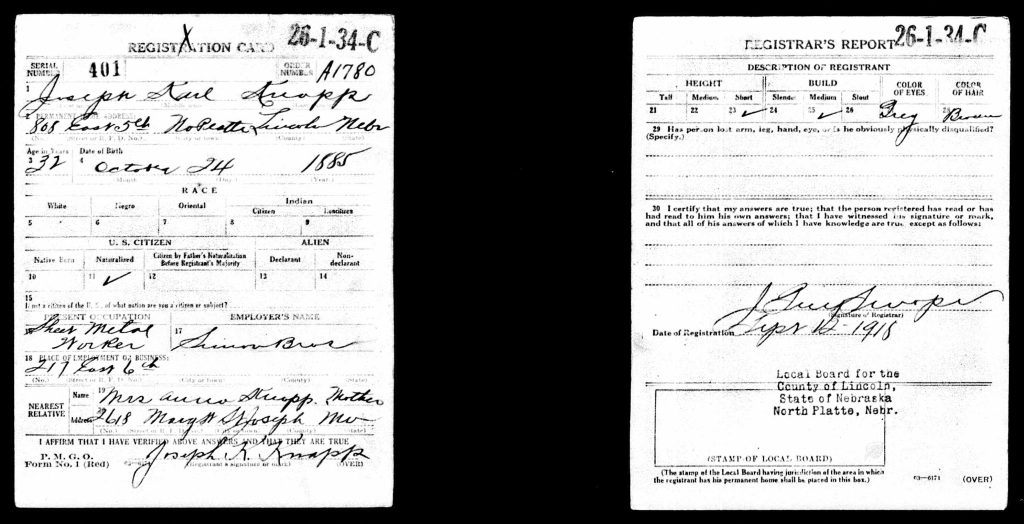 REGISTRATION CARD 26-1-34-C
SERIAL NUMBER 401 ORDER NUMBER A1780
1 Joseph Karl Knapp
2 PERMANENT HOME ADDRESS:
808 East 5th No Platte Lincoln Nebr
(No.) (Street or R. F. D. No.) (City or town) (County) (State)
Age in Years Date of Birth
3 32 4 October 24 1885
(Month) (Day) (Year)
RACE
White Negro Oriental Indian
Citizen Noncitizen
5 6 7 8 9
U. S. CITIZEN ALIEN
Native Born Naturalized Citizen by Father's Naturalization Before Registrant's Majority Declarant Non-declarant
10 11 ✓ 12 13 14
15
If not a citizen of the U. S., of what nation are you a citizen or subject?
PRESENT OCCUPATION EMPLOYER'S NAME
16 Sheet Metal Worker 17 Simon Bros
18 PLACE OF EMPLOYMENT OR BUSINESS:
217 East 6th
(No.) (Street or R. F. D. No.) (City or town) (County) (State)
NEAREST RELATIVE Name 19 Mrs Anna Knapp. Mother
Address 20 2618 St Joseph Mo
(No.) (Street or R. F. D. No.) (City or town) (County) (State)
I AFFIRM THAT I HAVE VERIFIED ABOVE ANSWERS AND THAT THEY ARE TRUE
P. M. G. O.
Form No. 1 (Red) Joseph K. Knapp
(Registrant's signature or mark) (OVER)
REGISTRAR'S REPORT 26-1-34-C
DESCRIPTION OF REGISTRANT
HEIGHT BUILD COLOR OF EYES COLOR OF HAIR
Tall Medium Short Slender Medium Stout
21 22 23 ✓ 24 25 ✓ 26 27 Grey 28 Brown
29 Has person lost arm, leg, hand, eye, or is he obviously physically disqualified?
(Specify.)
30 I certify that my answers are true; that the person registered has read or has
had read to him his own answers; that I have witnessed his signature or mark,
and that all of his answers of which I have knowledge are true, except as follows:
J Guy Swope
(Signature of Registrar)
Date of Registration Sept 12 - 1918
Local Board for the
County of Lincoln,
State of Nebraska
North Platte, Nebr.
(STAMP OF LOCAL BOARD)
(The stamp of the Local Board having jurisdiction of the area in which
the registrant has his permanent home shall be placed in this box.)
03—6171 (OVER)